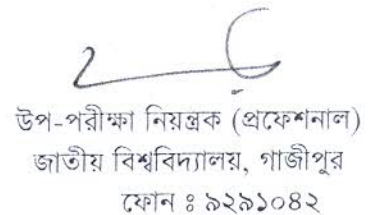 উপ-পরীক্ষা নিয়ন্ত্রক (প্রফেশনাল)
জাতীয় বিশ্ববিদ্যালয়, গাজীপুর
ফোন ঃ ৯২৯১০৪২